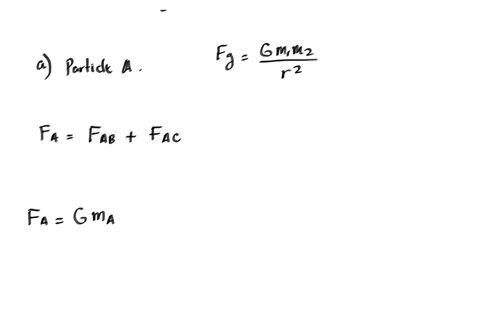 a) Particle A. Fg = G m₁ m₂ / r²
F_A = F_AB + F_AC
F_A = G m_A